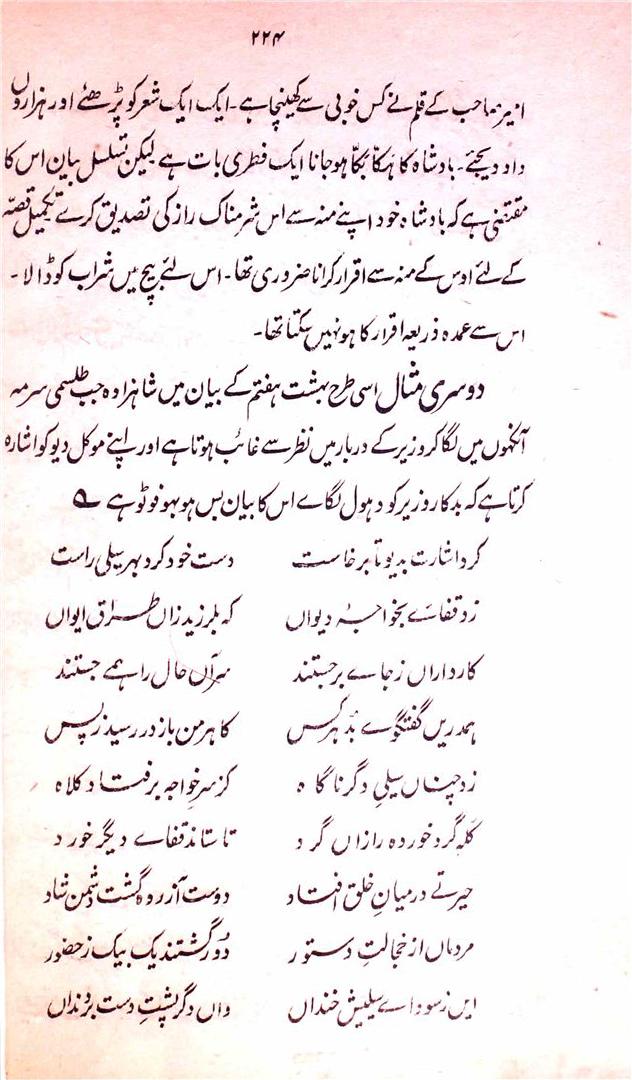 ۲۲۴
از میر صاحب کے قلم نے کس خوبی سے کھینچا ہے۔ ایک ایک شعر کو پڑھئے اور ہزاروں
داد دیجئے۔ بادشاہ کا ہکّا بکّا ہو جانا ایک فطری بات ہے لیکن تسلسل بیان اس کا
مقتضی ہے کہ بادشاہ خود اپنے منہ سے اس شرمناک راز کی تصدیق کرے تکمیل قصّہ
کے لئے اوس کے منہ سے اقرار کرانا ضروری تھا۔ اس لئے بیچ میں شراب کو ڈالا۔
اس سے عمدہ ذریعہ اقرار کا ہو نہیں سکتا تھا۔
دوسری مثال اسی طرح بہشت ہفتم کے بیان میں شاہزادہ جب طلسمی سرمہ
آنکھوں میں لگا کر وزیر کے دربار میں نظر سے غائب ہوتا ہے اور اپنے موکل دیو کو اشارہ
کرتا ہے کہ بدکار وزیر کو دہول لگاے اس کا بیان بس ہو بہو فوٹو ہے ؎
کرد اشارت بدیو تا برخاست دست خود کرد بہر سیلی راست
زد قفاے بخواجہ دیواں کہ بلرزید زاں طراق ایواں
کارداراں ز جاے برجستند سرآں حال را ہمے جستند
ہمدریں گفتگوے بد ہر کس کاہرمن باز در رسید ز پس
زد چناں سیلیِ دگر ناگاہ کز سر خواجہ برفتاد کلاہ
کلہ گرد خوردہ را زاں گرد تا ستاند قفاے دیگر خورد
حیرتے درمیانِ خلق افتاد دوست آزردہ گشت دشمن شاد
مردماں از خجالتِ دستور دور گشتند یک بیک ز حضور
ایں ز سوداے سیلیش خنداں واں دگر پشتِ دست بر دنداں